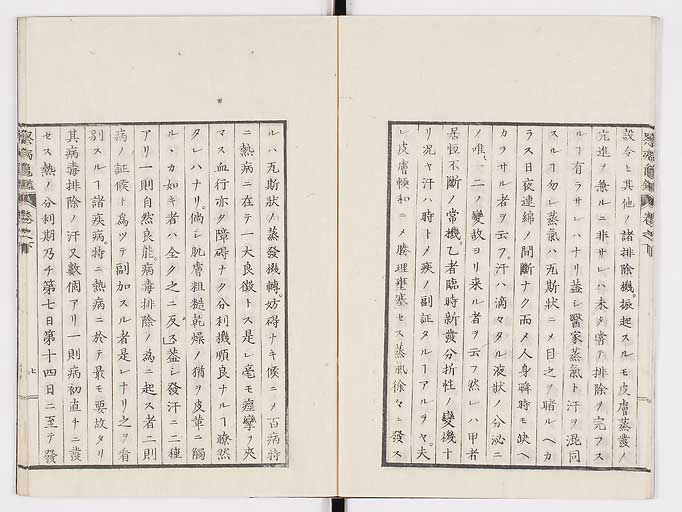 設令ヒ其他ノ諸排除機振起スルモ皮膚蒸發ノ
亢進ヲ兼ルニ非サレハ未タ寄テ排除ヲ完フス
ルヿ有ラサレハナリ蓋シ醫家蒸氣ト汗ヲ混同
スルヿ勿レ蒸氣ハ瓦斯狀ニメ目之ヲ睹ルヘカ
ラス日夜連綿ノ間斷ナク而メ人身瞬時モ缺ヘ
カラサル者ヲ云フ汗ハ滴々タル液狀ノ分泌ニ
ノ唯一二ノ變故ヨリ來ル者ヲ云フ然レハ甲者
居恒不斷ノ常機乙者臨時新發分折性ノ變機ナ
リ況ヤ汗ハ時トメ疾ノ副証タルヿアルヲヤ夫
レ皮膚愼和ニメ腠理壅塞セス蒸氣徐々ニ發ス
察病亀鑑 卷之下
ルハ瓦斯狀ノ蒸發機轉妨碍ナキ候ニメ百病特
ニ熱病ニ在テ一大良徵トス是レ毫モ痙攣ヲ夾
マス血行亦タ障碍ナク分利機順良ナルヿ瞭然
タレハナリ倘シ肌膚粗糙乾燥ノ猶ヲ皮革ニ觸
ルヽカ如キ者ハ全ク之ニ反ス蓋シ發汗ニ二種
アリ一則自然良能病毒排除ノ為ニ起ス者二則
病ノ証候ト為ツテ副加スル者是レナリ之ヲ甄
別スルヿ諸疾病特ニ熱病ニ於テ最モ要故タリ
其病毒排除ノ汗又數個アリ一則病初直チニ發
セス熱ノ分利期乃チ第七日第十四日ニ至テ發
察病亀鑑 卷之下
七